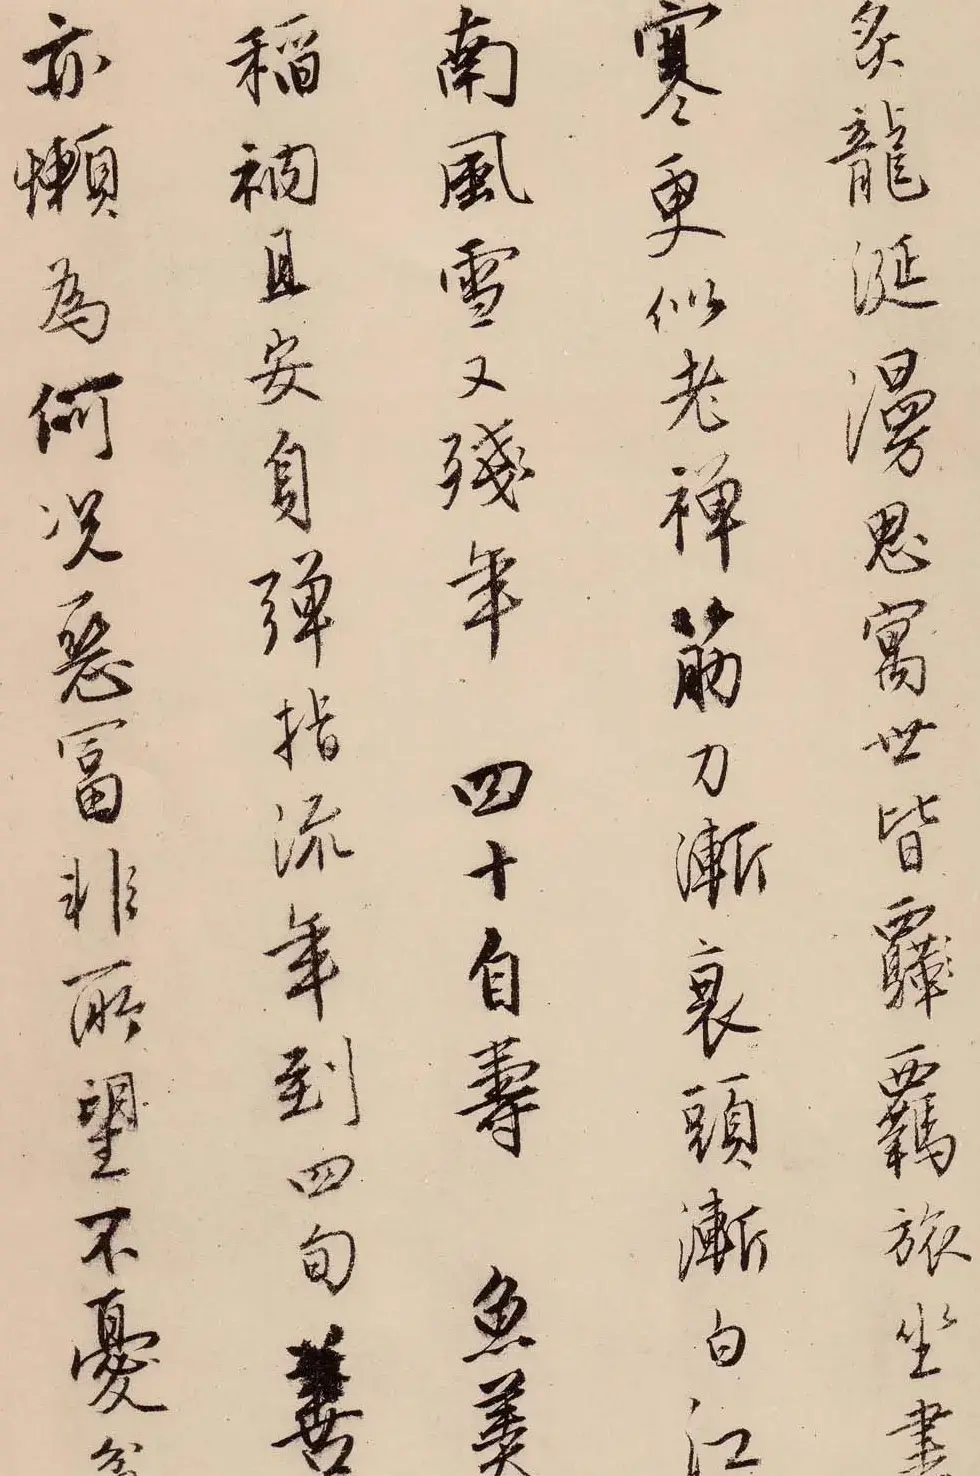 炙龍涎漫思寓世皆羈羈旅坐
寒更似老禪筋力漸衰頭漸白江
南風雪又殘年 四十自壽 魚羹
稻衲且安身彈指流年到四旬善
亦懶為何況惡富非所望不憂